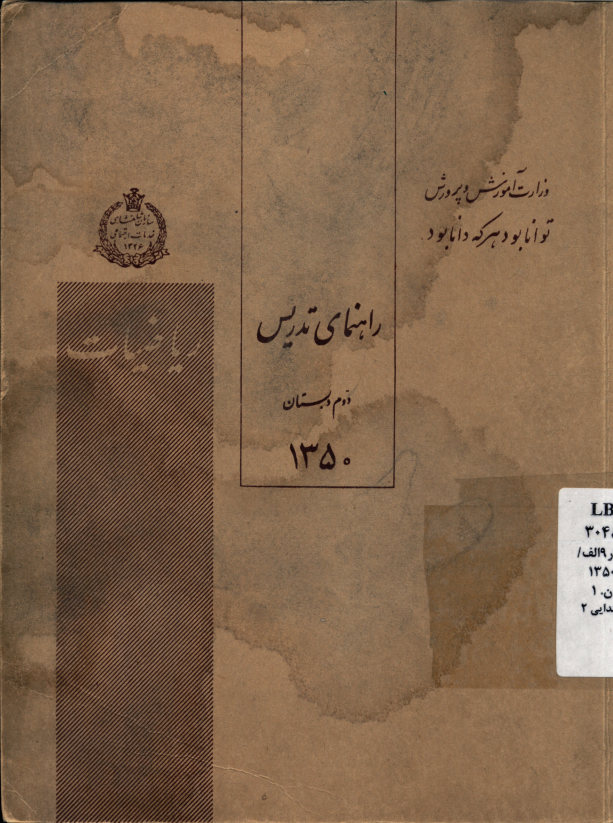 وزارت آموزش و پرورش
توانا بود هر که دانا بود
سازمان شاهنشاهی
خدمات اجتماعی
۱۳۲۶
ریاضیات
راهنمای تدریس
دوم دبستان
۱۳۵۰
LB
۳۰۴
ر۹الف/
۱۳۵۰
ن. ۱
دایی ۲